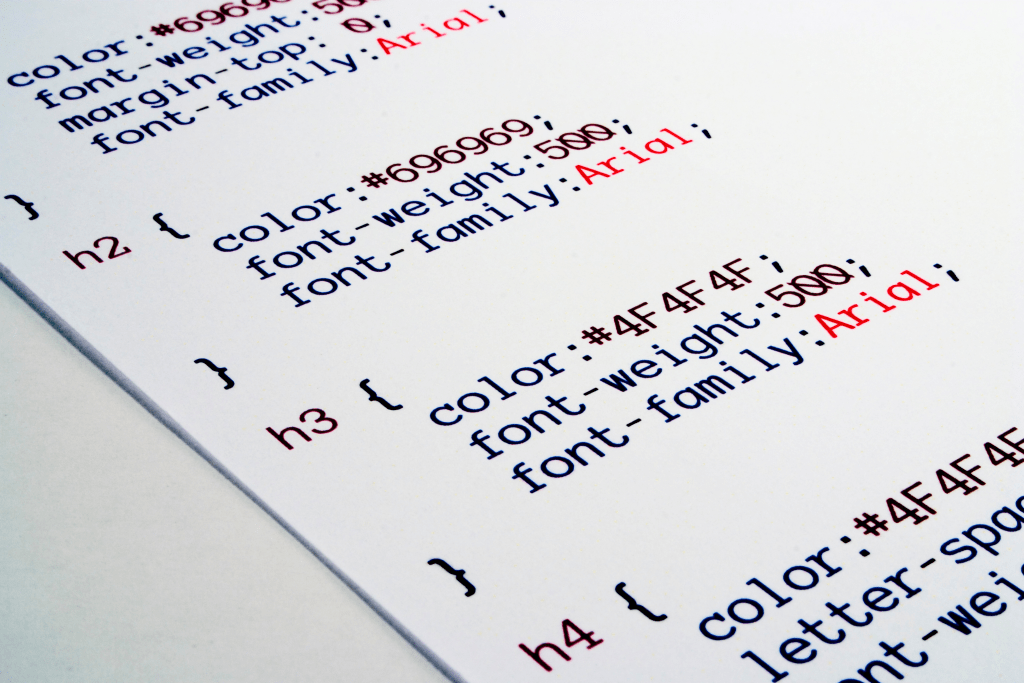 color:#69696
font-weight:50
margin-top: 0;
font-family:Arial;
}
h2 { color:#696969;
font-weight:500;
font-family:Arial;
}
h3 { color:#4F4F4F;
font-weight:500;
font-family:Arial;
}
h4 { color:#4F4F4F
letter-spac
font-wei